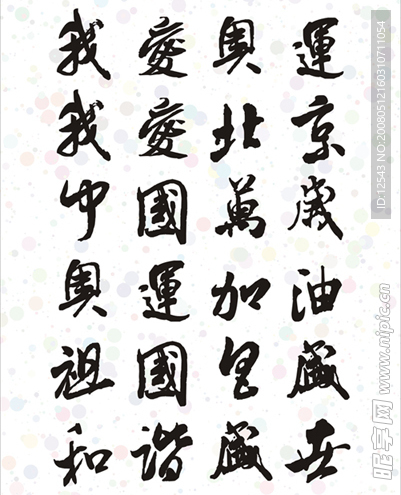 我愛奧運
我愛北京
中國萬歲
奧運加油
祖國昌盛
和諧盛世
ID:12543 NO:20080512160310711054
昵享网 www.nipic.cn